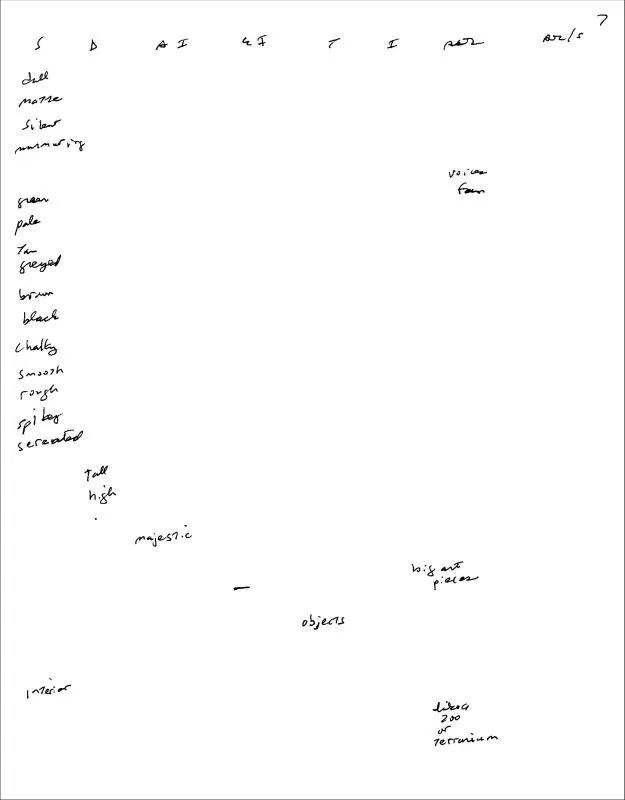 7
S D AI EI T I AOL AOL/S
dull
matte
silent
murmuring
voices
green
pale
tan
greyed
brown
black
chalky
smooth
rough
spikey
sereated
tall
high
majestic
big art
pieces
—
objects
interior
like a
zoo
or
terrarium